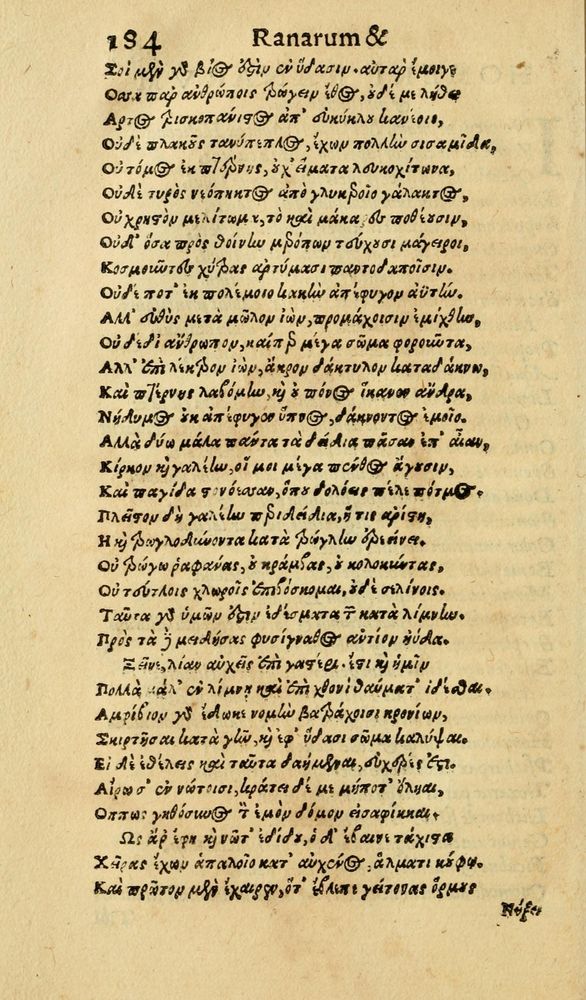 184 Ranarum &
Σοὶ μὲν γὰρ βίος ἐστὶν ἐν ὕδασιν. αὐτὰρ ἔμοιγε
Ὅσα παρ' ἀνθρώποις τρώγειν ἔθος, οὐδέ με λήθει
Ἄρτος τρισκοπάνιστος ἀπ' εὐκύκλου κανέοιο,
Οὐδὲ πλακοῦς τανύπεπλος, ἔχων πολλὴν σισαμίδα,
Οὐ τόμος ἐκ πτέρνης, οὐχ' εἵματα λευκοχίτωνα,
Οὐδὲ τυρὸς νεόπηκτος ἀπὸ γλυκεροῖο γάλακτος,
Οὐ χρηστὸν μελίτωμα, τὸ καὶ μάκαρες ποθέουσιν,
Οὐδ' ὅσα πρὸς θοίνην μερόπων τεύχουσι μάγειροι,
Κοσμοῦντες χύτρας ἀρτύμασι παντοδαποῖσιν.
Οὐδέ ποτ' ἐκ πολέμοιο κακὴν ἀπέφυγον ἀϋτὴν.
Ἀλλ' εὐθὺς μετὰ μῶλον ἰὼν, προμάχοισιν ἐμίχθην,
Οὐ δέδι' ἄνθρωπον, καίπερ μέγα σῶμα φοροῦντα,
Ἀλλ' ἐπὶ λέκτρον ἰὼν, ἄκρον δάκτυλον καταδάκνω,
Καὶ πτέρνης λαβόμην, καὶ οὐ πόνος ἵκανεν ἄνδρα,
Νήδυμος οὐκ ἀπέφυγεν ὕπνος, δάκνοντος ἐμοῖο.
Ἀλλὰ δύω μάλα πάντα τὰ δείδια πᾶσαν ἐπ' αἶαν,
Κίρκον καὶ γαλέην, οἵ μοι μέγα πένθος ἄγουσιν,
Καὶ παγίδα στονόεσσαν, ὅπου δολόεις πέλε πότμος.
Πλεῖστον δὴ γαλέην περιδείδια, ἥ τις ἀρίστη,
Ἣ καὶ τρωγλοδύνοντα κατὰ τρώγλην ἐρεείνει.
Οὐ τρώγω ῥαφάνας, οὐ κράμβας, οὐ κολοκύντας,
Οὐ τεύτλοις χλωροῖς ἐπιβόσκομαι, οὐδὲ σελίνοις.
Ταῦτα γὰρ ὑμῶν ἐστὶν ἐδέσματα τῶν κατὰ λίμνην.
Πρὸς τὰ δὲ μειδήσας φυσίγναθος ἀντίον ηὔδα.
Ξεῖνε, λίαν αὐχεῖς ἐπὶ γαστέρι. ἔστι καὶ ἡμῖν
Πολλὰ μάλ' ἐν λίμνῃ καὶ ἐπὶ χθονὶ θαύματ' ἰδέσθαι.
Ἀμφίβιον γὰρ ἔδωκε νομὴν βατράχοισι κρονίων,
Σκιρτῆσαι κατὰ γῆν, καὶ ἐφ' ὕδασι σῶμα καλύψαι.
Εἰ δὲ ἐθέλεις καὶ ταῦτα δαήμεναι, εὐχερές ἐστι.
Αἶρω σ' ἐν νώτοισι, κράτει δέ με μήποτ' ὄληαι,
Ὅππως γηθόσυνος τὸν ἐμὸν δόμον εἰσαφίκηαι.
Ὣς ἄρ' ἔφη καὶ νῶτ' ἐδίδου, ὁ δ' ἔβαινε τάχιστα
Χεῖρας ἔχων ἁπαλοῖο κατ' αὐχένος, ἅλματι κούφῳ.
Καὶ πρῶτον μὲν ἔχαιρεν, ὅτ' ἔβλεπε γείτονας ὅρμους
Νήξει